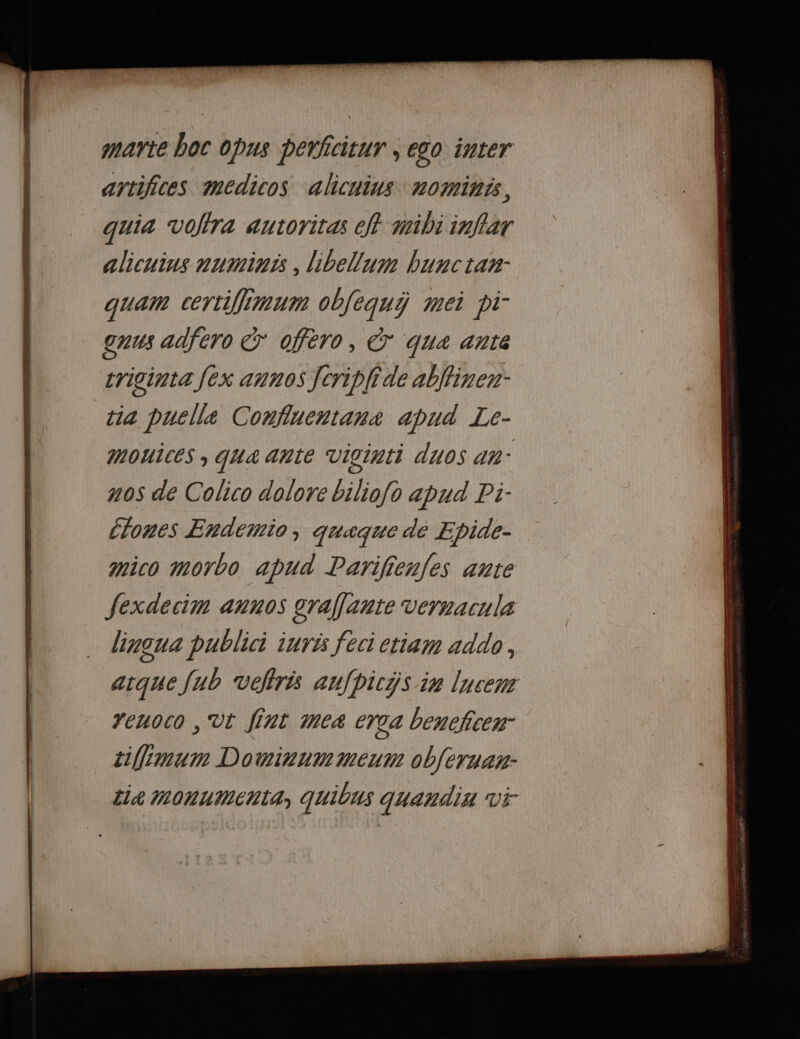 marte hoc opus perficitur, ego inter
artifices medicos alicuius nominis,
quia vostra autoritas est mihi instar
alicuius numinis, libellum hunc tan-
quam certissimum obsequij mei pi-
gnus adfero & offero, & quæ ante
triginta sex annos scripsi de abstinen-
tia puellæ Confluentanæ apud Le-
mouices, quæ ante viginti duos an-
nos de Colico dolore bilioso apud Pi-
ctones Endemio, quæque de Epide-
mico morbo apud Parisienses ante
sexdecim annos grassante vernacula
lingua publici iuris feci etiam addo,
atque sub vestris auspicijs in lucem
reuoco, vt sint mea erga beneficen-
tissimum Dominum meum obseruan-
tiæ monumenta, quibus quandiu vi-